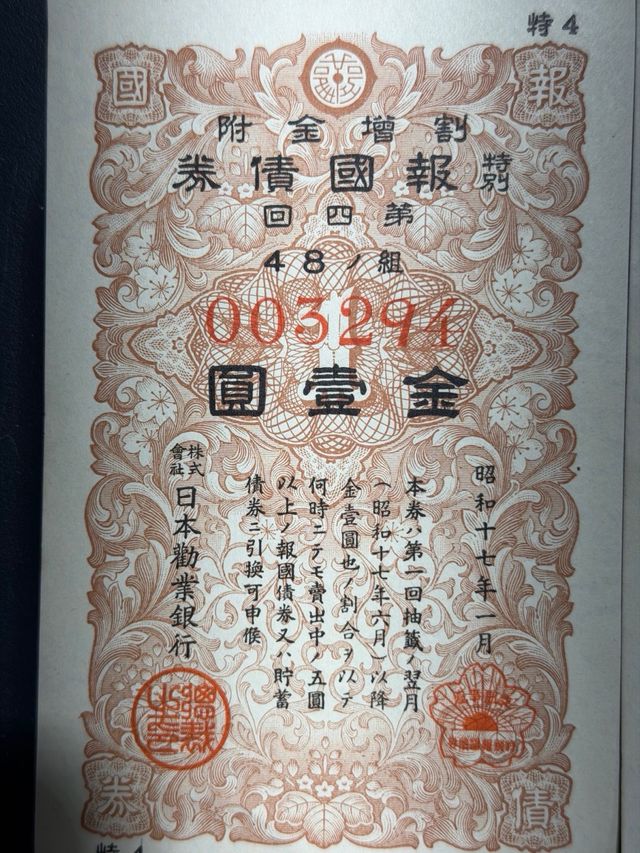 特4
國
報
割增金附
特別
報國債券
第四回
48ノ組
003294
1
金壹圓
昭和十七年一月
本券ハ第一回抽籤ノ翌月
(昭和十七年六月)以降
金壹圓也ノ割合ヲ以テ
何時ニテモ賣出中ノ五圓
以上ノ報國債券又ハ貯蓄
債券ニ引換可申候
株式會社
日本勸業銀行
券
債
特4